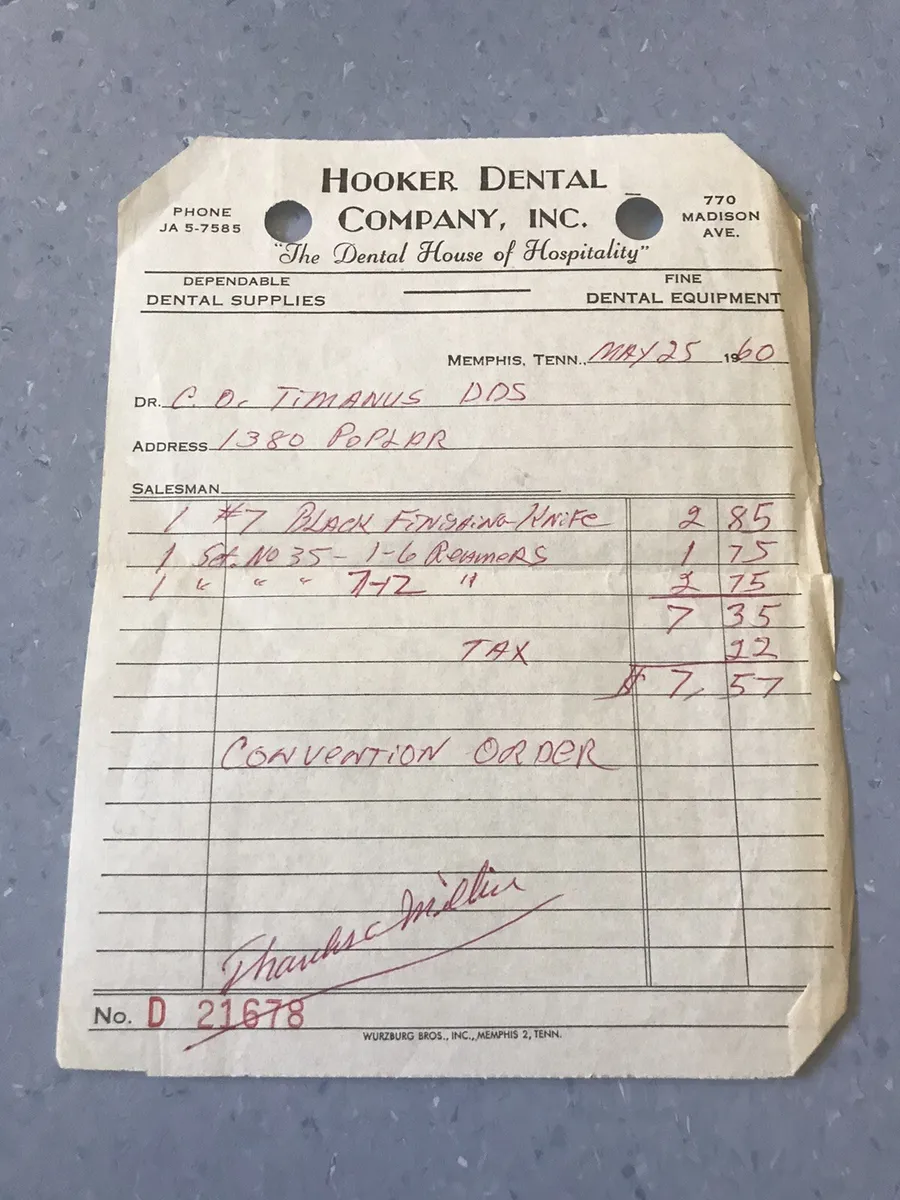 HOOKER DENTAL
COMPANY, INC.
PHONE
JA 5-7585
770
MADISON
AVE.
"The Dental House of Hospitality"
DEPENDABLE
DENTAL SUPPLIES
FINE
DENTAL EQUIPMENT
MEMPHIS, TENN., MAY 25 1960
DR. C. O. TIMANUS DDS
ADDRESS 1380 POPLAR
SALESMAN
1 #7 BLACK FINISHING KNIFE 2 85
1 Set. NO 35 - 1-6 REAMERS 1 75
1 " " " 7-12 " 2 75
7 35
TAX 22
$ 7, 57
CONVENTION ORDER
Thanks a Million
No. D 21678
WURZBURG BROS., INC., MEMPHIS 2, TENN.